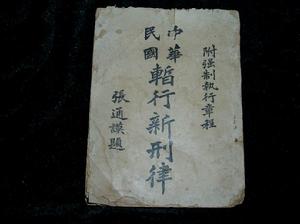 附强制執行章程
中華民國
暫行新刑律
張通謨題